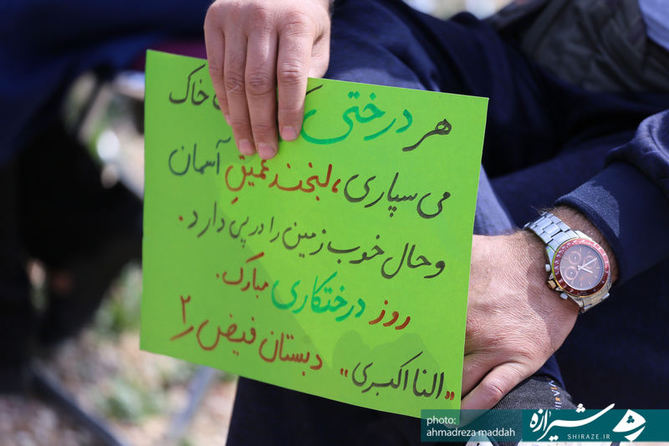 هر درختی که به خاک
می سپاری، لبخند عمیقِ آسمان
و حال خوب زمین را در پی دارد.
روز درختکاری مبارک.
دبستان فیض ر۲
"النا اکبری"
photo:
ahmadreza maddah
شیرازه
SHIRAZE.IR